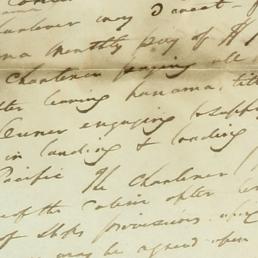 Charterer may direct - f
on a monthly pay of $1
Charterer paying all
after leaving Panama, till
Owner engaging to supply
in landing & loading
Pacific The Charterer
of the Cabin after
of ships provisions upon
may be agreed upon